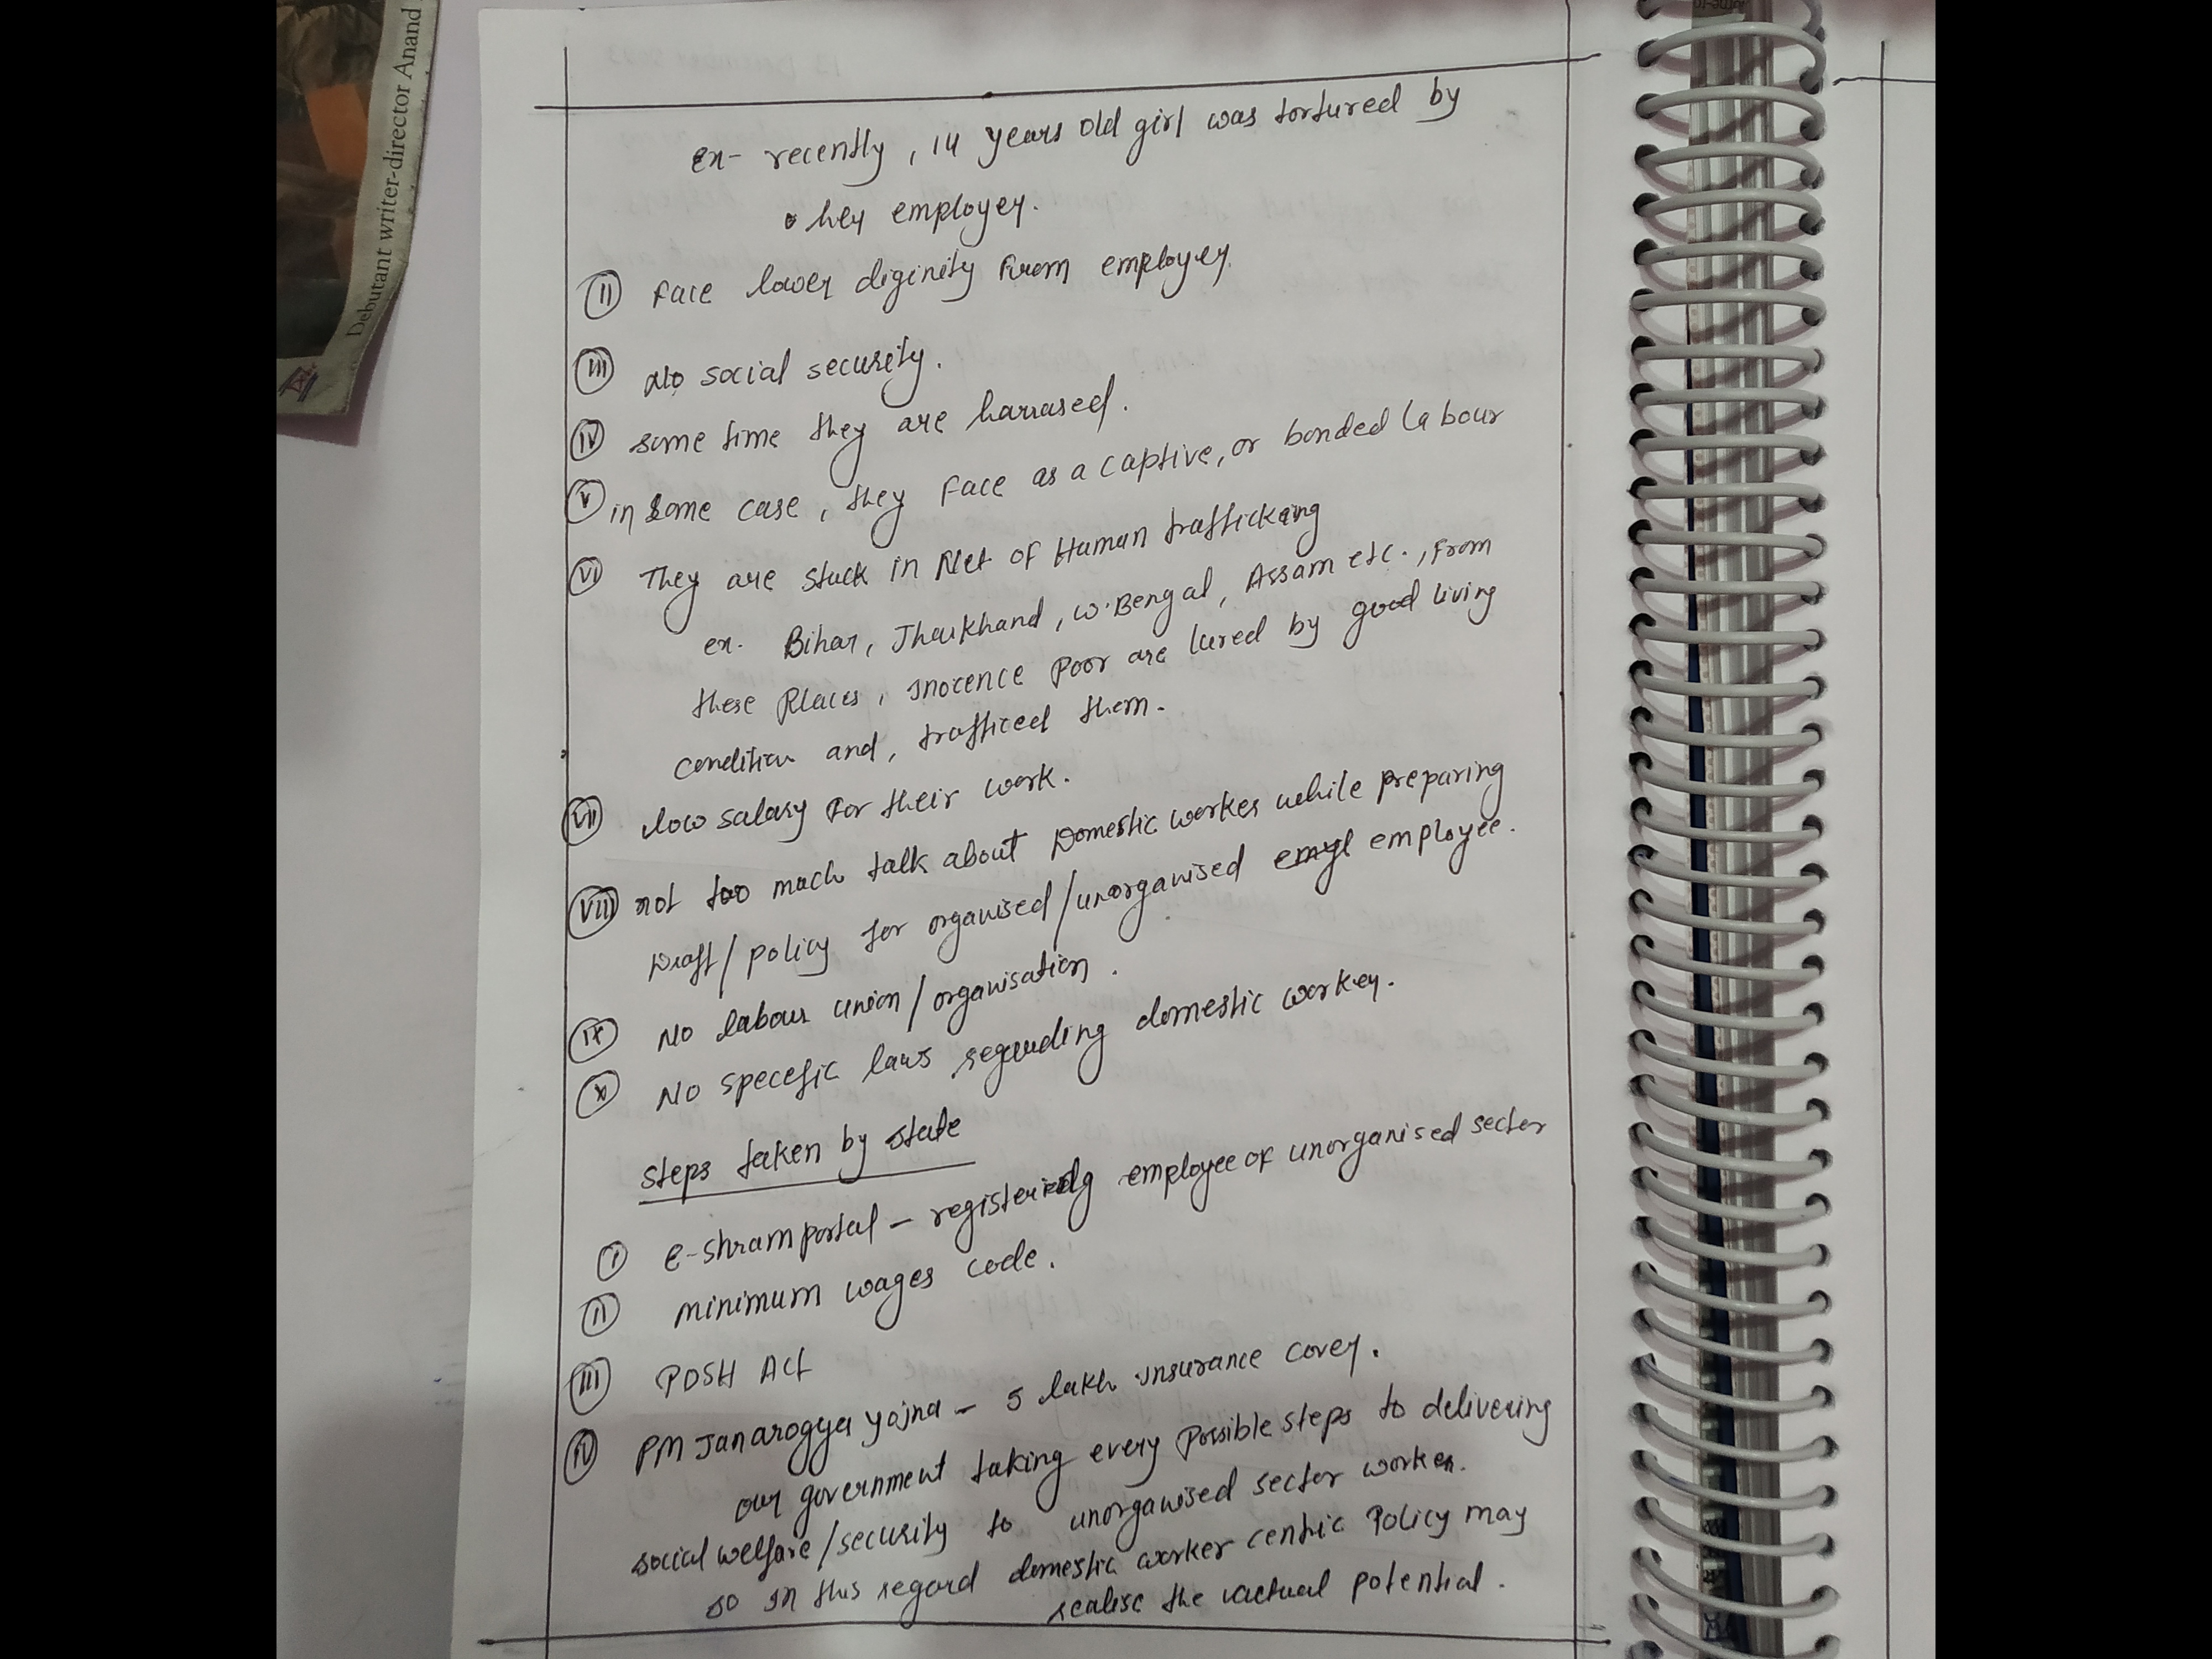 Debutant writer-director Anand
ex- recently, 14 years old girl was tortured by
her employer.
(II) Face lower diginity from employer.
(III) No social security.
(IV) some time they are harrased.
(V) in some case, they face as a captive, or bonded labour
(VI) They are stuck in Net of Human trafficking
ex. Bihar, Jharkhand, W.Bengal, Assam etc., from
these Places, inocence poor are lured by good living
condition and, trafficed them.
(VII) low salary for their work.
(VIII) not too much talk about Domestic workes while preparing
Draft/policy for organised/unorganised employee.
(IX) No labour union/organisation.
(X) No specefic laws regarding domestic worker.
steps taken by state
(I) e-shram portal - registering employee of unorganised sector
(II) minimum wages code.
(III) POSH Act
(IV) PM Janarogya yojna - 5 lakh insurance cover.
our government taking every possible steps to delivering
social welfare/security to unorganised sector worker.
so in this regard domestic worker centric policy may
realise the actual potential.